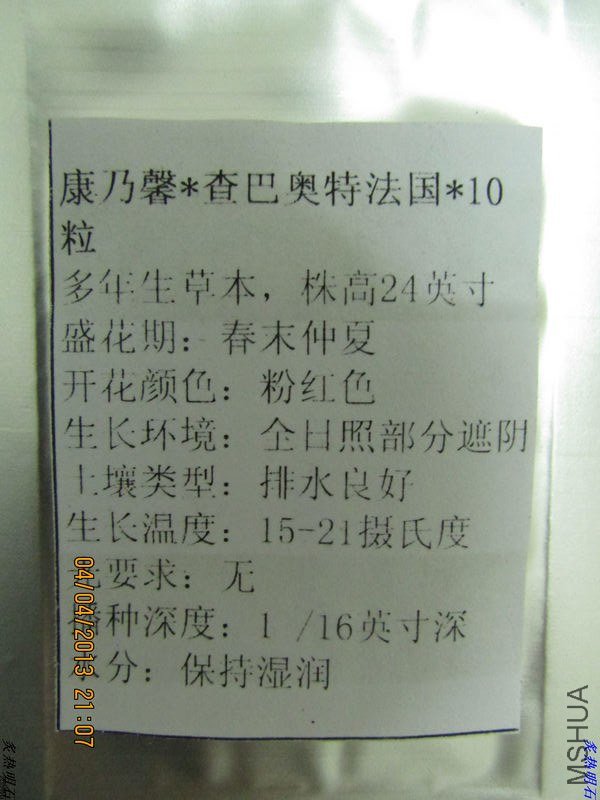 康乃馨*查巴奥特法国*10
粒
多年生草本，株高24英寸
盛花期：春末仲夏
开花颜色：粉红色
生长环境：全日照部分遮阴
土壤类型：排水良好
生长温度：15-21摄氏度
光要求：无
播种深度：1 /16英寸深
水分：保持湿润
04/04/2013 21:07
MSHUA
炙热明石
炙热明石